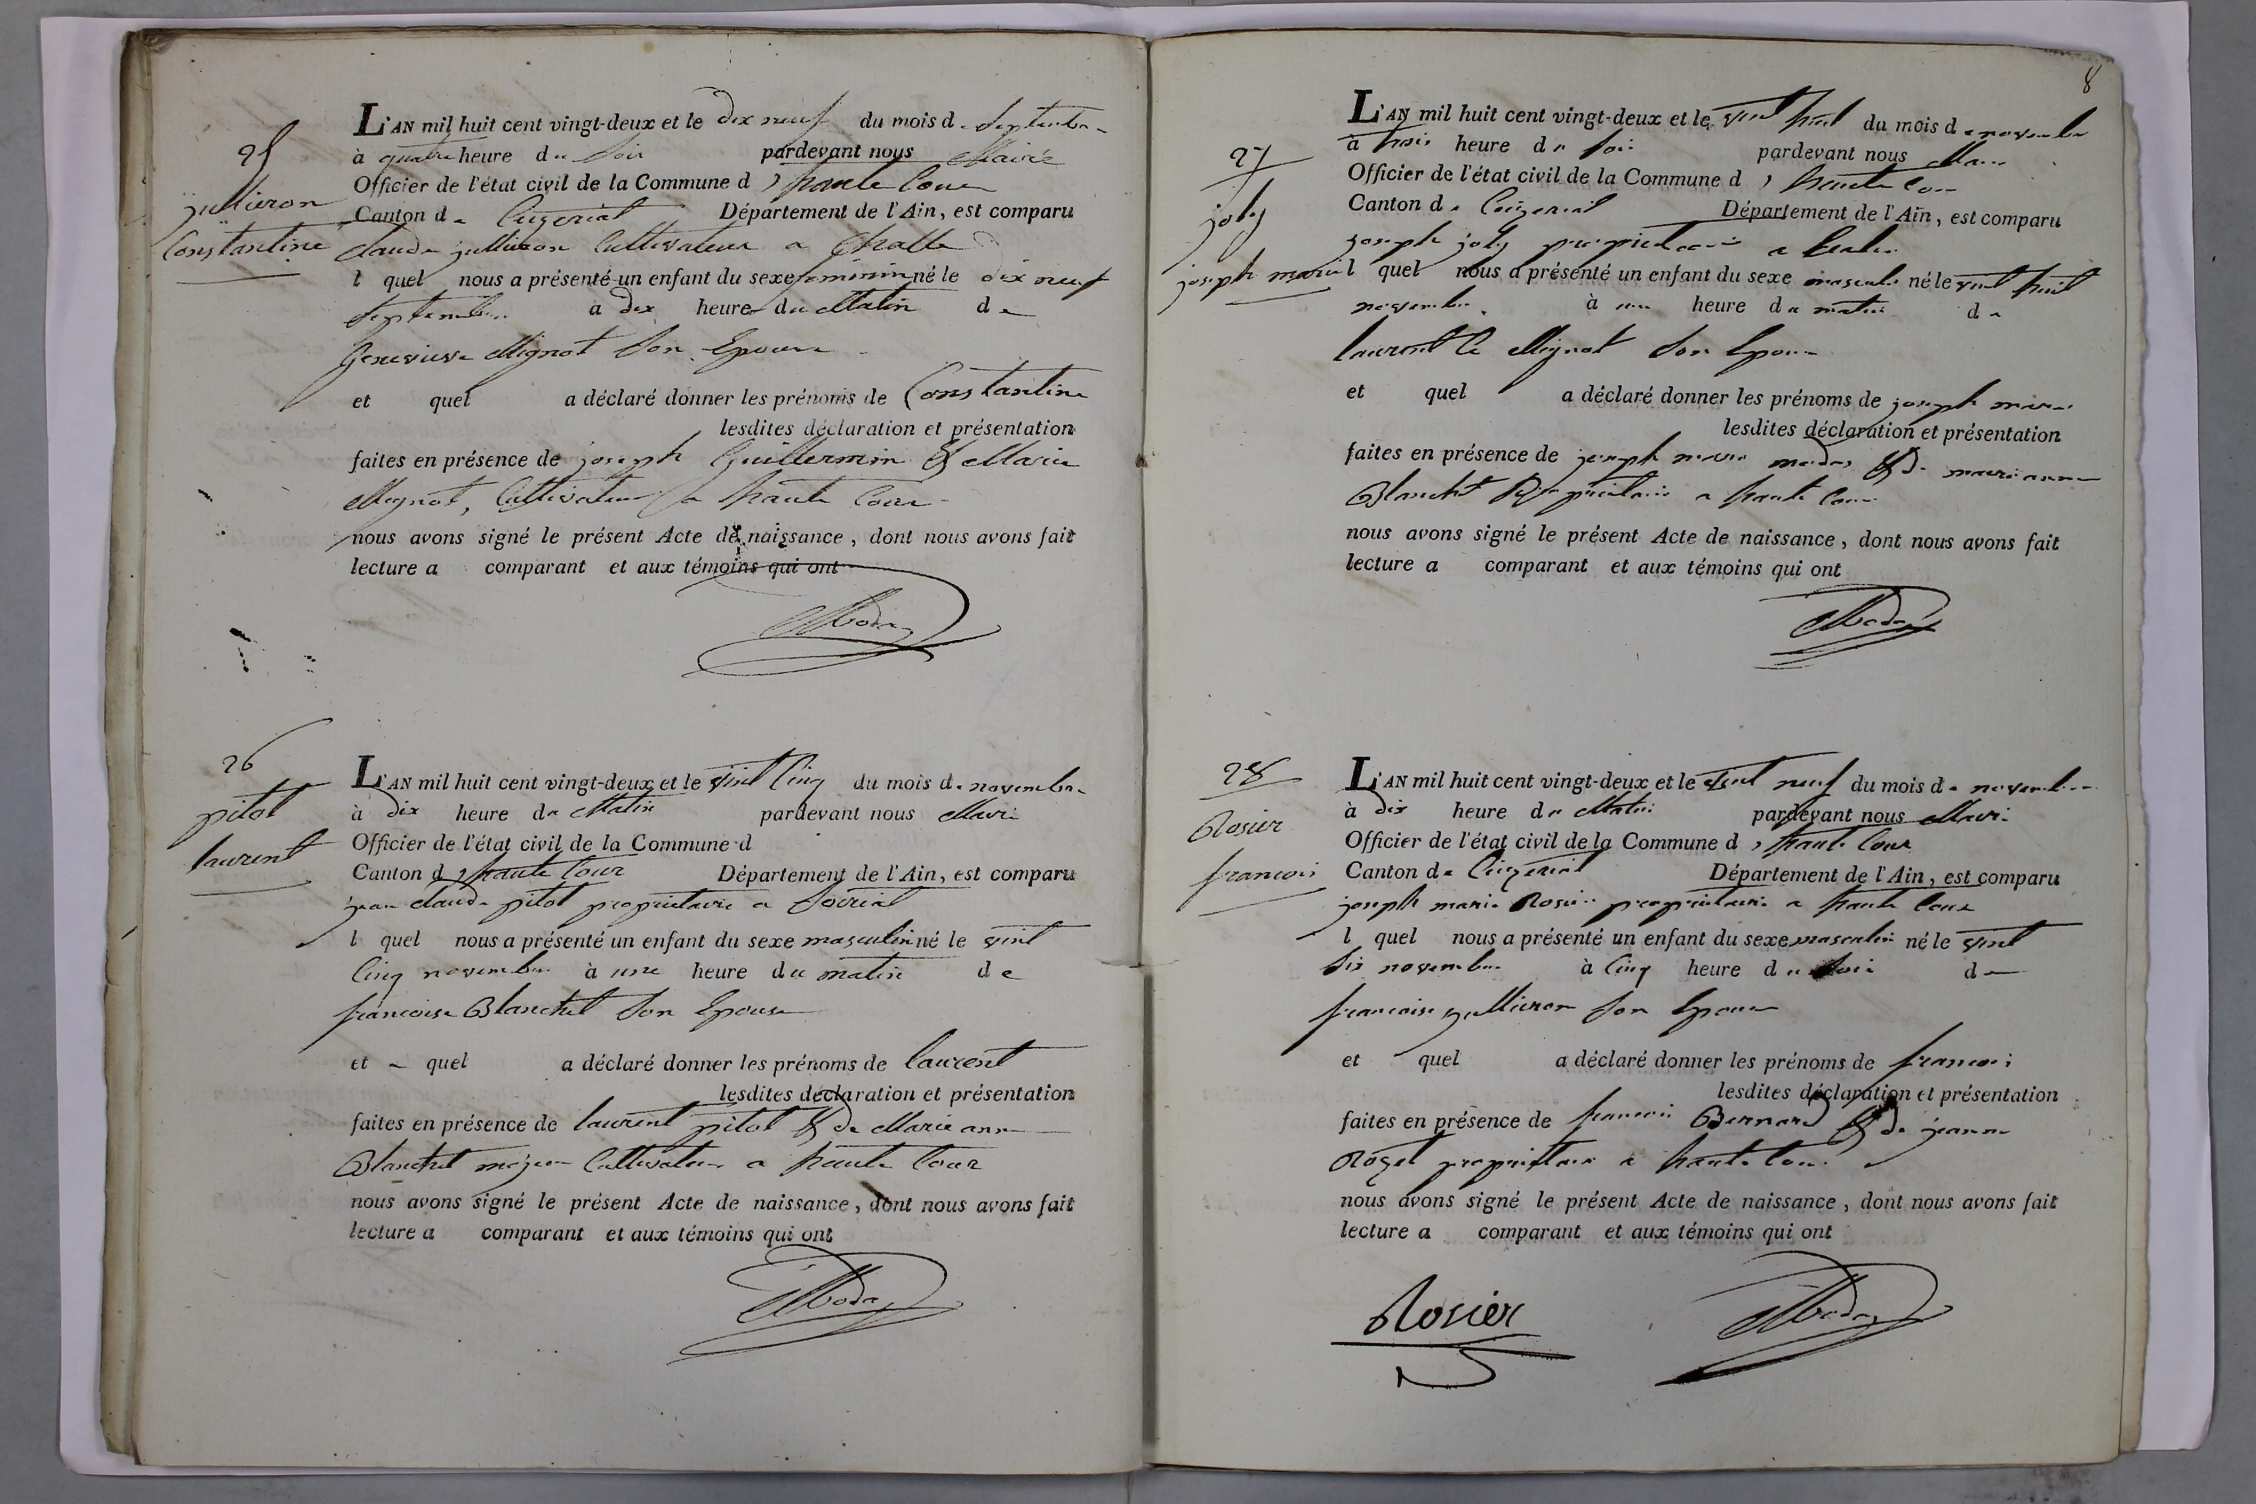 25
jullieron
Constantine
L'AN mil huit cent vingt-deux et le dix neuf du mois de Septembre
à quatre heure du Soir pardevant nous Maire
Officier de l'état civil de la Commune d haute Cour
Canton de Département de l'Ain, est comparu
Claude jullieron Cultivateur a Challe
l quel nous a présenté un enfant du sexe feminin né le dix neuf
Septembre a dix heure du Matin de
Genevieve Mignot Son Epouse
et quel a déclaré donner les prénoms de Constantine
lesdites déclaration et présentation
faites en présence de joseph Guillermin & Marie
Mignot, Cultivateur a haute Cour
nous avons signé le présent Acte de naissance, dont nous avons fait
lecture a comparant et aux témoins qui ont
Moda
26
pitot
laurent
L'AN mil huit cent vingt-deux et le vint Cinq du mois de novembre
à dix heure du Matin pardevant nous Maire
Officier de l'état civil de la Commune d
Canton d haute Cour Département de l'Ain, est comparu
jean Claude pitot proprietaire a
l quel nous a présenté un enfant du sexe masculin né le vint
Cinq novembre à une heure du matin de
francoise Blanchet Son Epouse
et quel a déclaré donner les prénoms de laurent
lesdites déclaration et présentation
faites en présence de laurent pitot & de Marie anne
Blanchet Cultivateur a haute Cour
nous avons signé le présent Acte de naissance, dont nous avons fait
lecture a comparant et aux témoins qui ont
Moda
8
27
joly
joseph marie
L'AN mil huit cent vingt-deux et le vint huit du mois de novembre
à trois heure du soir pardevant nous Maire
Officier de l'état civil de la Commune d haute Cour
Canton de Département de l'Ain, est comparu
joseph joly proprietaire a
l quel nous a présenté un enfant du sexe masculin né le vint huit
novembre à une heure du matin de
laurent Ce Mignot Son Epouse
et quel a déclaré donner les prénoms de joseph marie
lesdites déclaration et présentation
faites en présence de joseph marie & de marie anne
Blanchet proprietaire a haute Cour
nous avons signé le présent Acte de naissance, dont nous avons fait
lecture a comparant et aux témoins qui ont
Moda
28
Rosier
francois
L'AN mil huit cent vingt-deux et le vint neuf du mois de novembre
à dix heure du Matin pardevant nous Maire
Officier de l'état civil de la Commune d haute Cour
Canton de Département de l'Ain, est comparu
joseph marie Rosier proprietaire a haute Cour
l quel nous a présenté un enfant du sexe masculin né le vint
Six novembre à Cinq heure du Soir de
francoise jullieron Son Epouse
et quel a déclaré donner les prénoms de francois
lesdites déclaration et présentation
faites en présence de francois Bernard & de jeanne
Rozet proprietaire a haute Cour
nous avons signé le présent Acte de naissance, dont nous avons fait
lecture a comparant et aux témoins qui ont
Rosier Moda